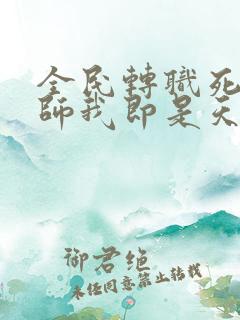 全民轉職死
師我即是天
御君绝
未经同意禁止转载